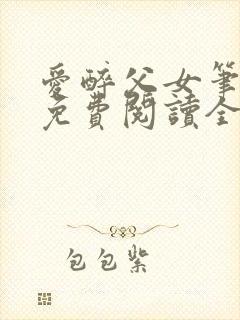 愛醉父女筆
免費閱讀全
包包紫